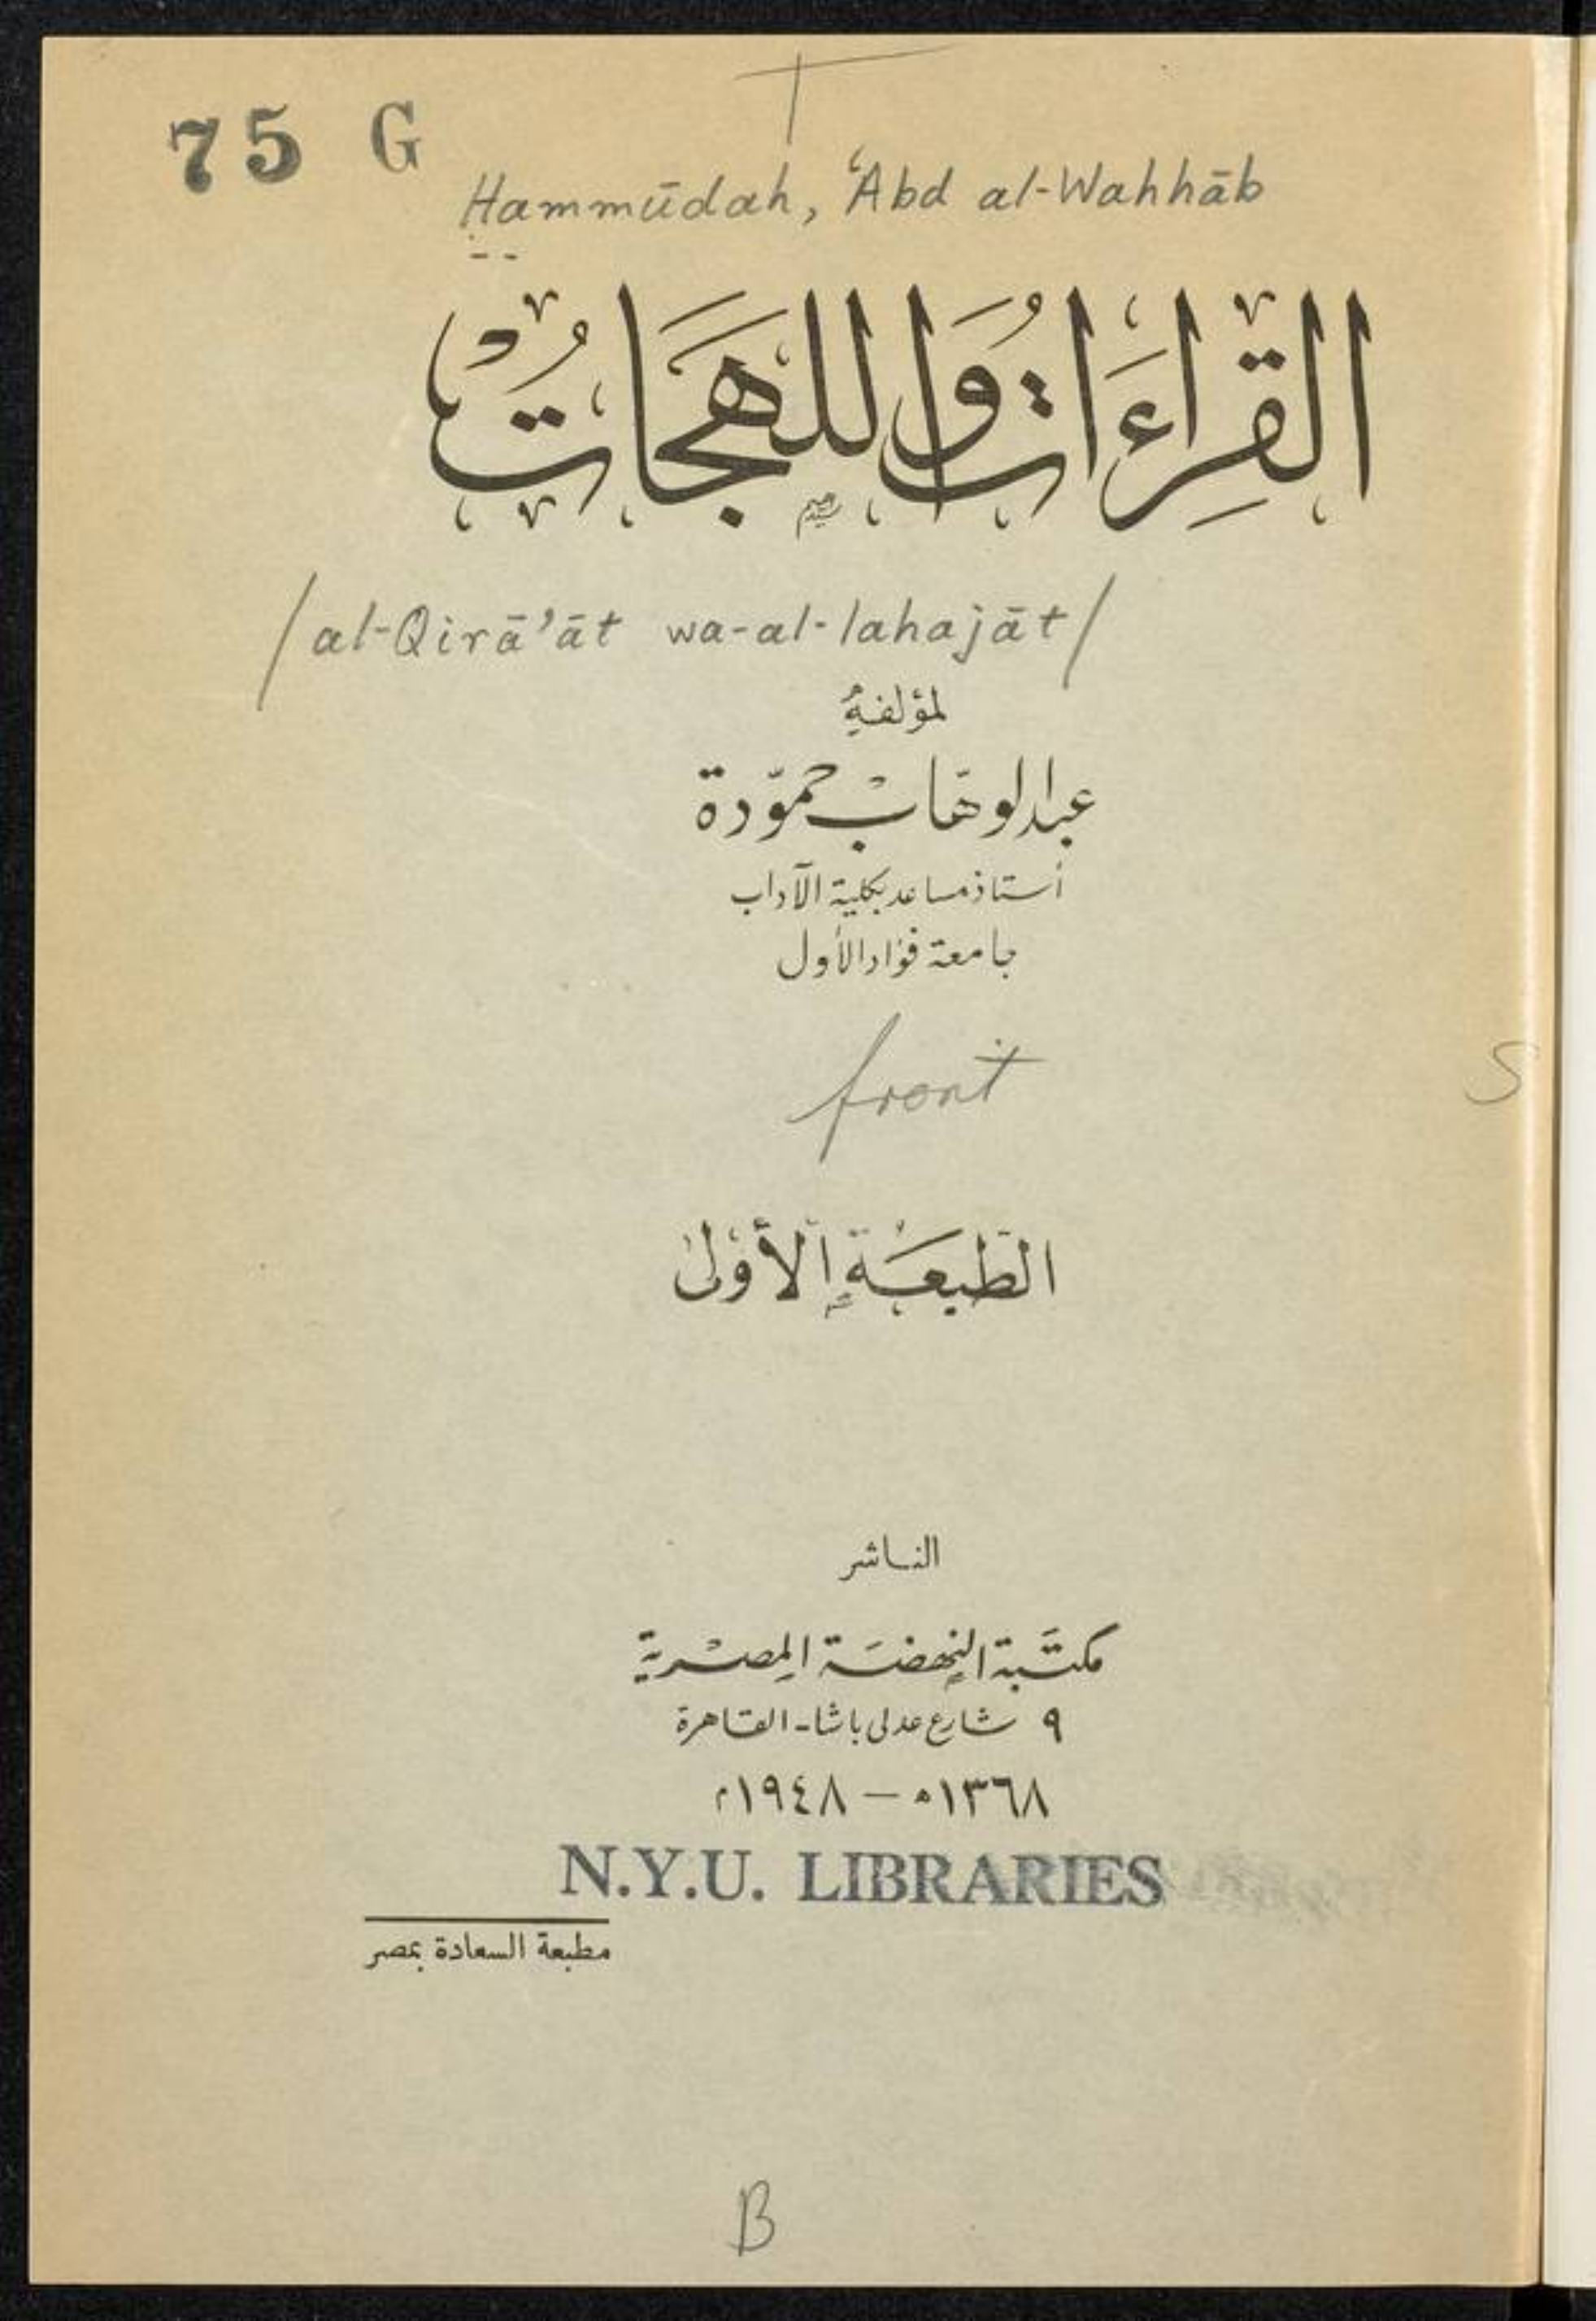 75 G
T
Ḥammūdah, ʿAbd al-Wahhāb
القِرَاءَاتُ وَاللهَجَاتُ
/al-Qirā'āt wa-al-lahajāt/
لمؤلفهِ
عبدالوهّاب حمّودة
أستاذ مساعد بكلية الآداب
جامعة فؤاد الأول
front
S
الطَبعَة الأولى
الناشر
مكتَبة النهضَة المصْرية
٩ شارع عدلى باشا - القاهرة
١٣٦٨ه – ١٩٤٨م
N.Y.U. LIBRARIES
مطبعة السعادة بمصر
B